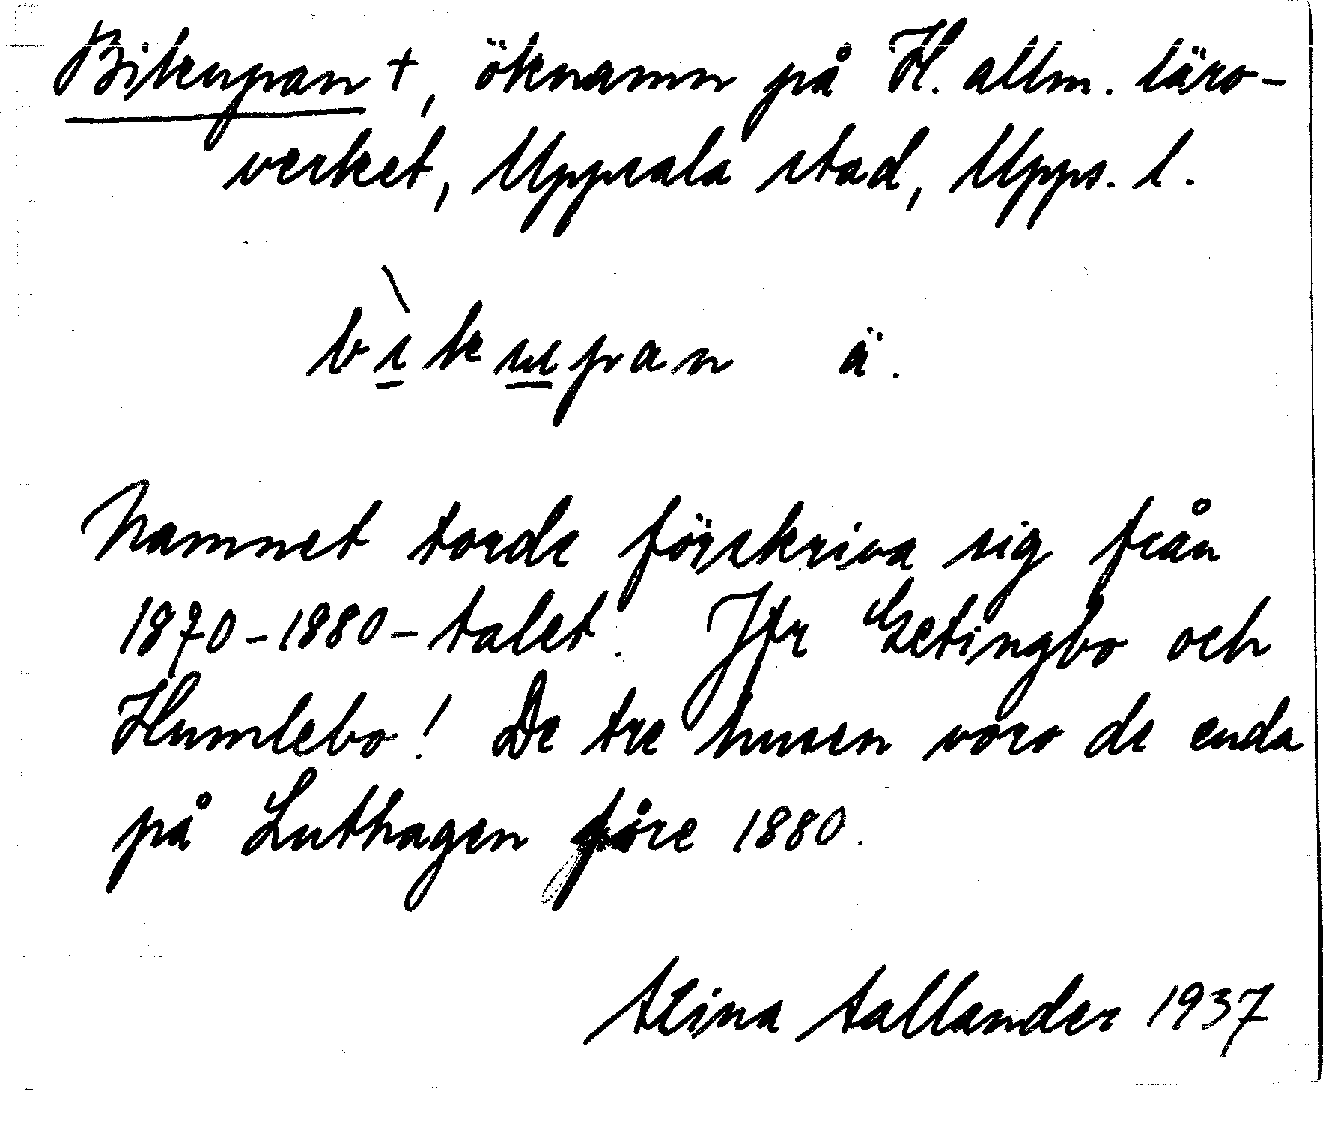 Bikupan +, öknamn på H. allm. läro-
verket, Uppsala stad, Upps. l.
bìkupan ä.
Namnet torde förskriva sig från
1870-1880-talet. Jfr Getingbo och
Humlebo! De tre husen voro de enda
på Luthagen före 1880.
Stina Tallander 1937